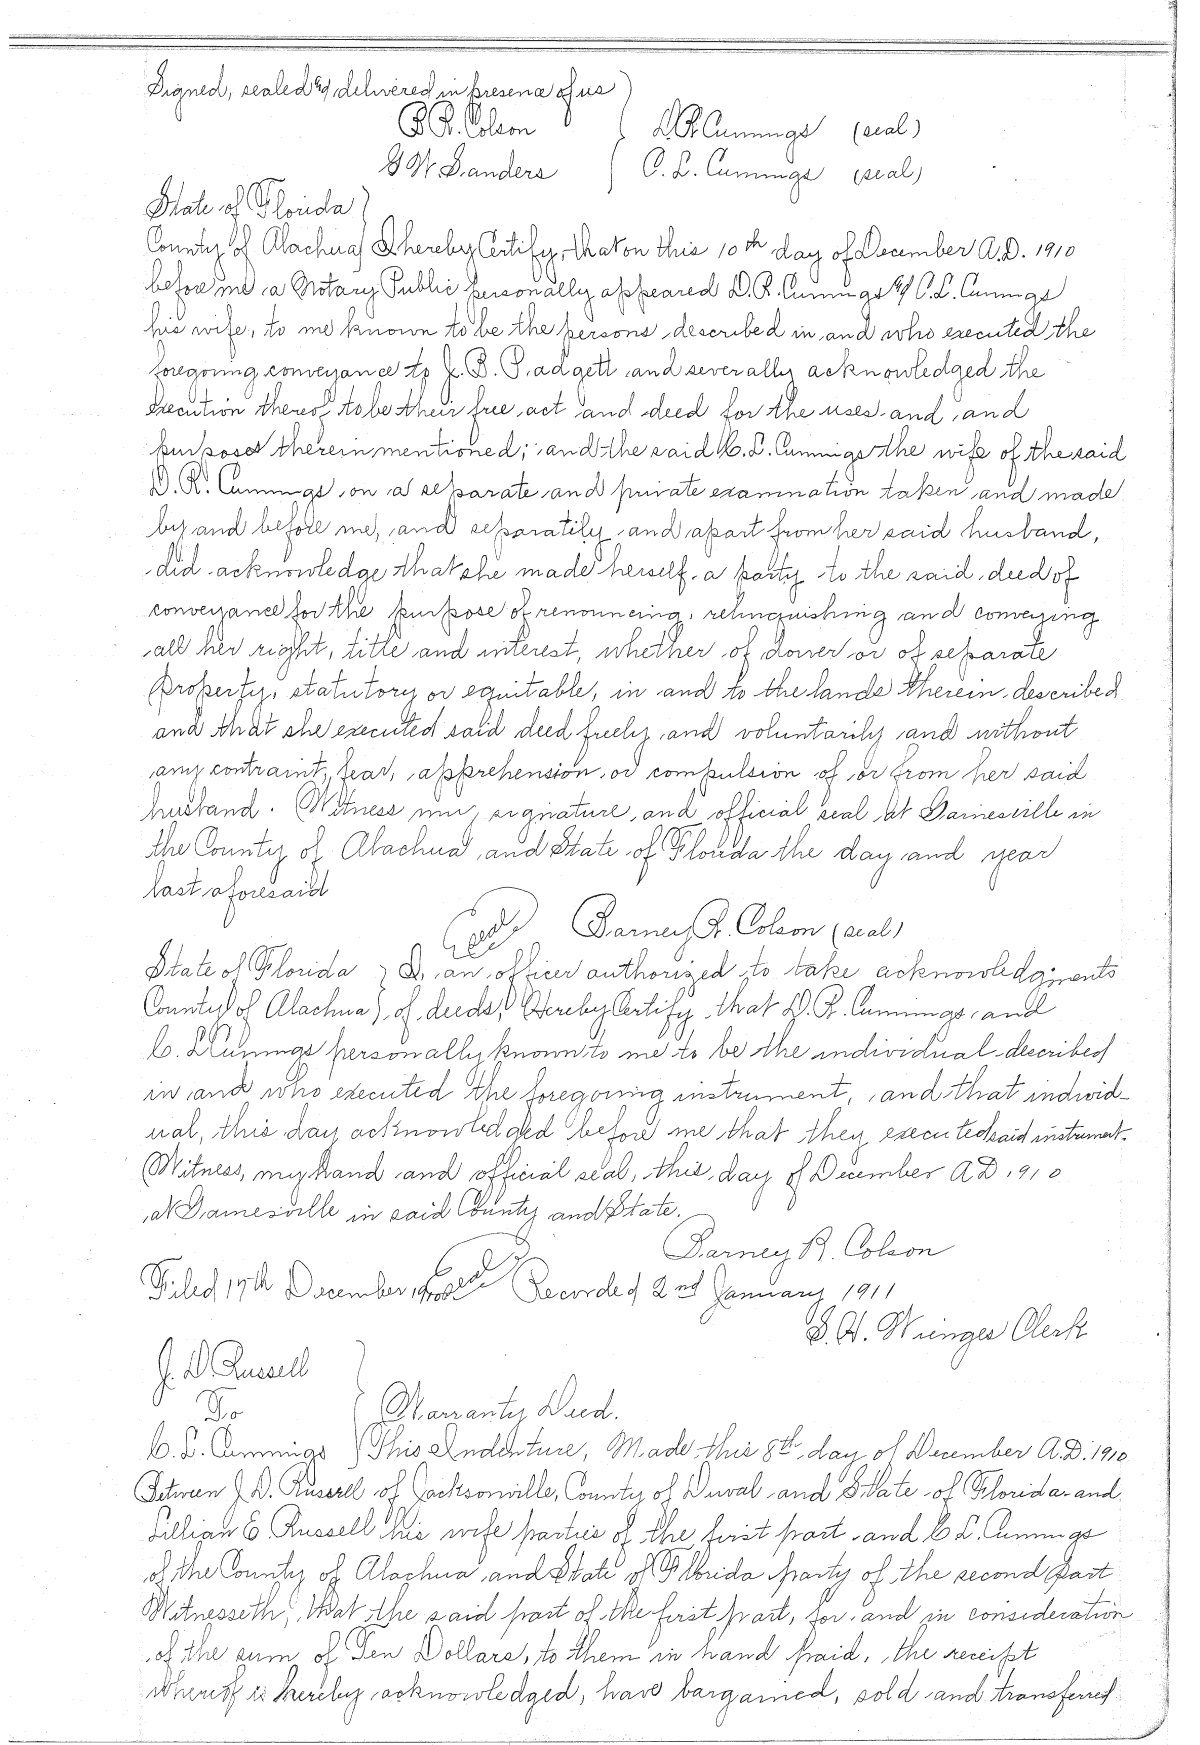 Signed, sealed & delivered in presence of us )
B. R. Colson ( D. R. Cummings (seal)
G W Sanders ( C. L. Cummings (seal)
State of Florida )
County of Alachua ) I hereby Certify, that on this 10th day of December A.D. 1910
before me a Notary Public personally appeared D. R. Cummings & C. L. Cummings
his wife, to me known to be the persons described in and who executed the
foregoing conveyance to J. B. Padgett and severally acknowledged the
execution thereof to be their free act and deed for the uses and and
purposes therein mentioned; and the said C. L. Cummings the wife of the said
D. R. Cummings on a separate and private examination taken and made
by and before me, and separatily and apart from her said husband,
did acknowledge that she made herself a party to the said deed of
conveyance for the purpose of renouncing, relinquishing and conveying
all her right, title and interest, whether of dower or of separate
property, statutory or equitable, in and to the lands therein described
and that she executed said deed freely and voluntarily and without
any contraint, fear, apprehension or compulsion of or from her said
husband. Witness my signature and official seal at Gainesville in
the County of Alachua and State of Florida the day and year
last aforesaid
(seal) Barney R. Colson (seal)
State of Florida ) I, an officer authorized to take acknowledgments
County of Alachua ) of deeds, Hereby Certify that D. R. Cummings and
C. L Cummings personally known to me to be the individual described
in and who executed the foregoing instrument, and that individ-
ual, this day acknowledged before me that they executed said instrument.
Witness, my hand and official seal, this day of December A D 1910
at Gainesville in said County and State.
Barney R. Colson
Filed 17th December, 1910 (seal) Recorded 2nd January 1911
S. H. Wienges Clerk
J. D Russell )
To ( Warranty Deed.
C. L. Cummings ) This Indenture, Made this 8th day of December A.D. 1910
Between J. D. Russell of Jacksonville, County of Duval and State of Florida and
Lillian E. Russell his wife parties of the first part and C L. Cummings
of the County of Alachua and State of Florida party of the second part
Witnesseth, that the said part of the first part, for and in consideration
of the sum of Ten Dollars, to them in hand paid, the receipt
whereof is hereby acknowledged, have bargained, sold and transferred